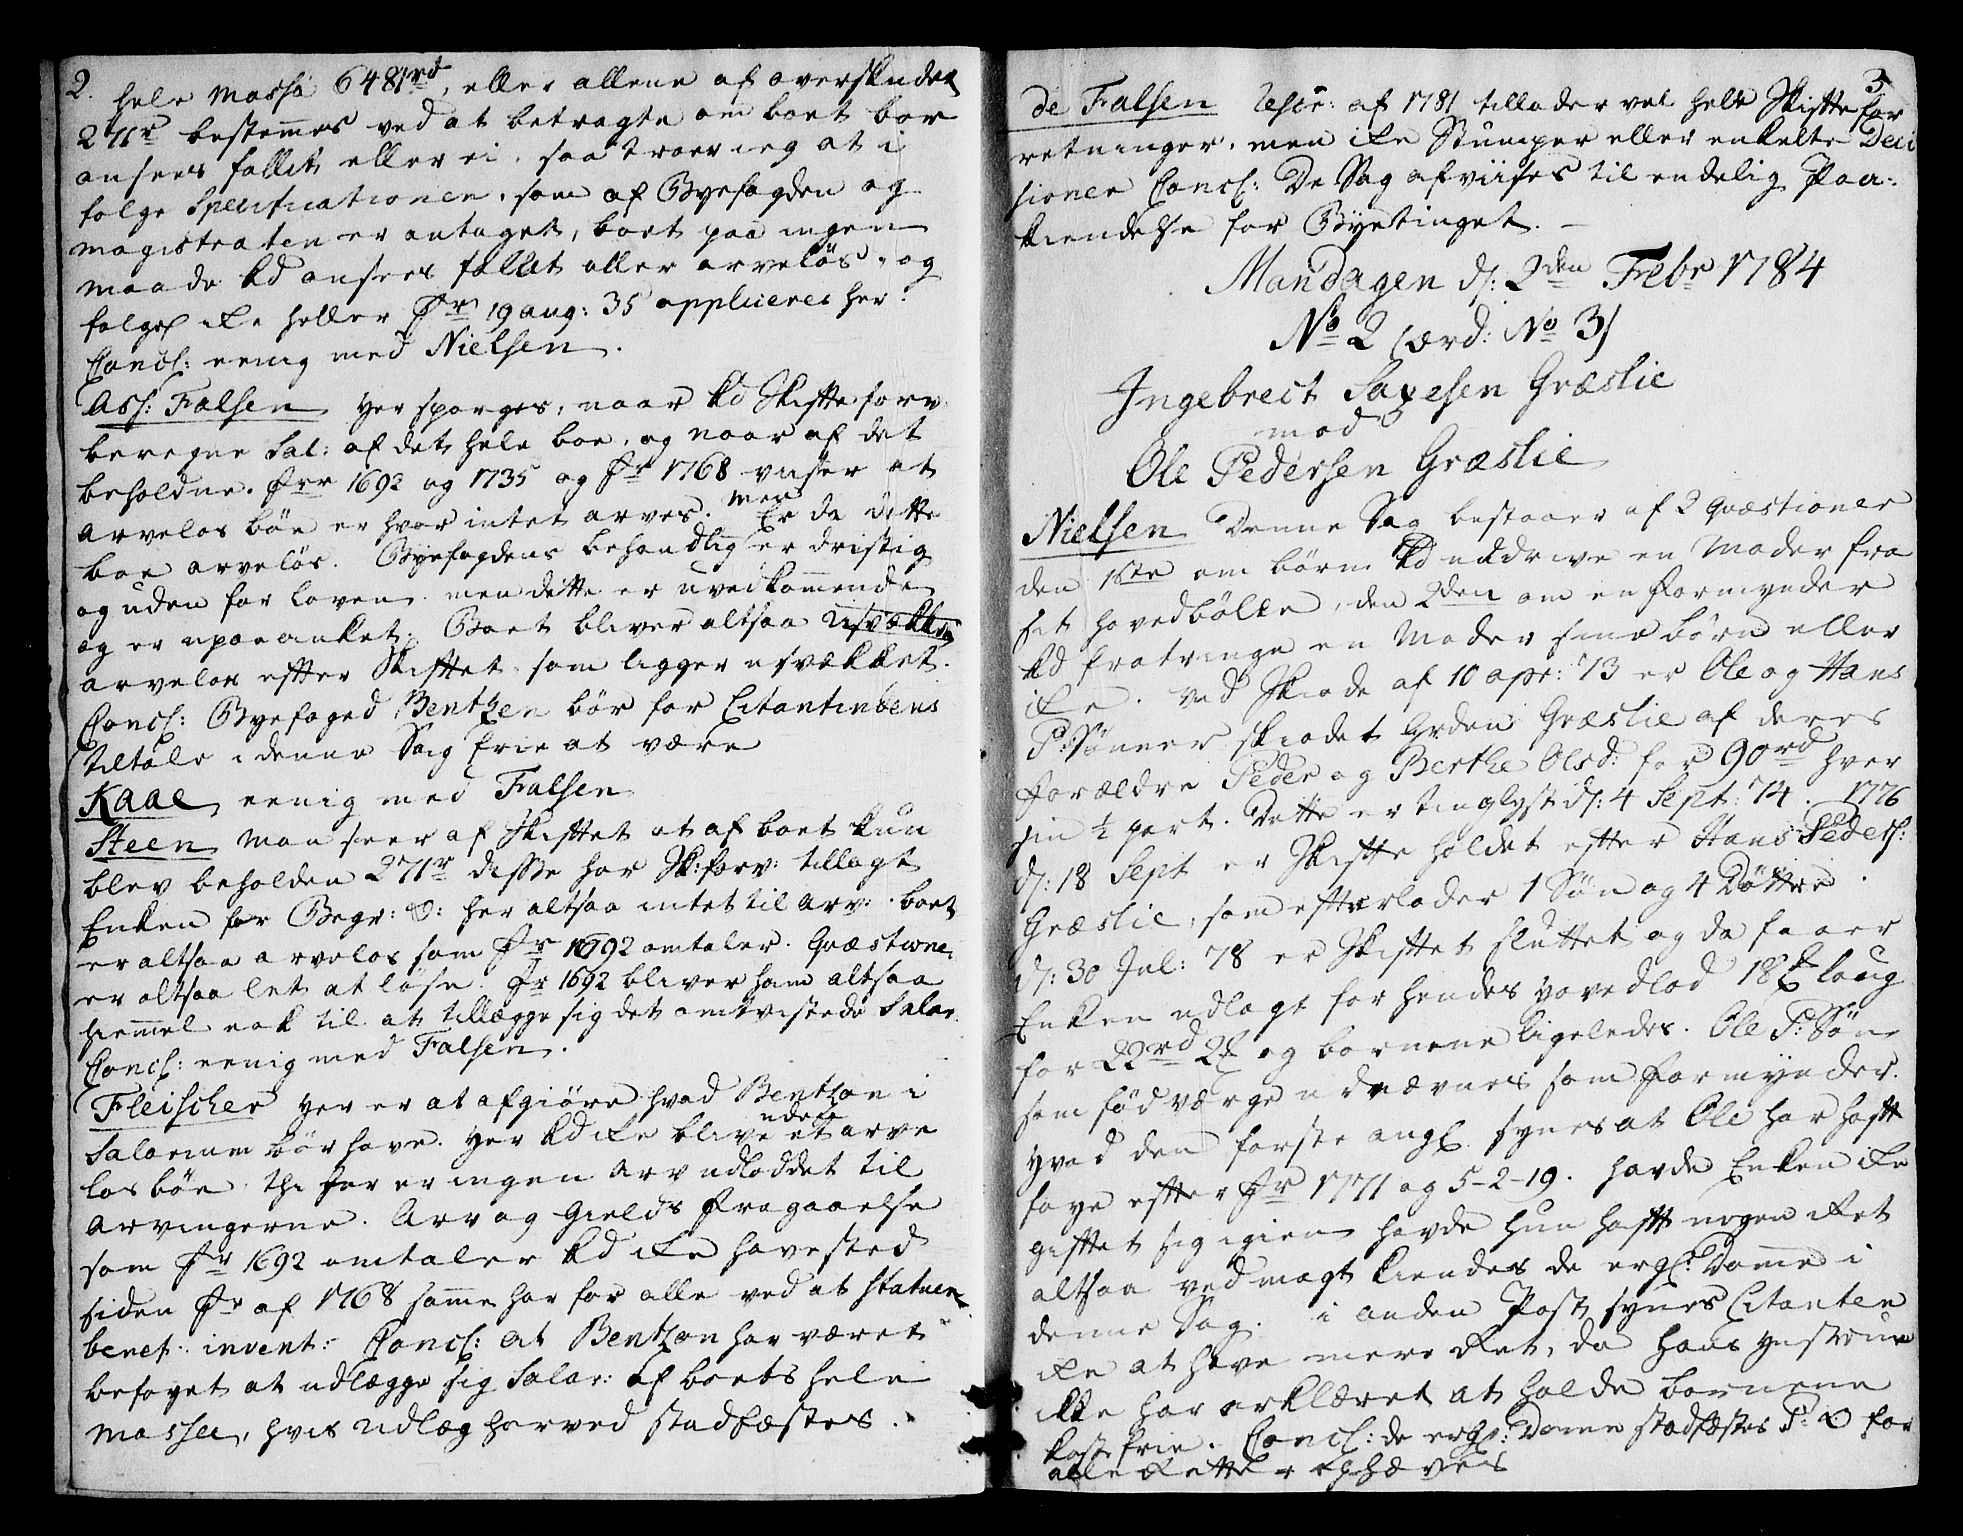 2.
hele Massa 6481rd, eller allene af overskudet
271r bestemmes ved at betragte om boet bør
ansees fallit eller ei. saa troer ieg at i
følge Specificationen, som af Byefogden og
magistraten er antaget, boet paa ingen
maade kd ansees fallit eller arveløs, og
følgel ike heller Fr 19 aug: 35 appliceres her.
Concl: eenig med Nielsen.
Ass: Falsen Her spørges, naar kd Skifteforv:
beregne Sal: af det hele boe, og naar af det
beholdne. Frr 1692 og 1735 og Fr 1768 viiser at
arveløs böe er hvor intet arves. men Er da dette
boe arveløs. Byefogdens behandlig er dristig
og uden for loven. men dette er uvedkommende
og er upaaanket. Boet bliver altsaa
arveløs efter Skiftet som ligger usvækket.
Concl: Byefoged Bentzen bör for Citantindens
tiltale i denne Sag frie at være
Kaae eenig med Falsen
Steen Man seer af Skiftet at af boet kun
blev beholden 271r disse har Sk:forv: tillagt
Enken for Begr: o: her altsaa intet til arv. boet
er altsaa arveløs som Fr 1692 omtaler. Qvæstione
er altsaa let at löse. Fr 1692 bliver ham altsaa
hiemmel nok til at tillægge sig det omtvistede Salar.
Concl: eenig med Falsen.
Fleischer Her er at afgiöre hvad Bentzon i
Salarium bör have. Her kd ike blive uden et arve
løs böe, thi her er ingen arv udloddet til
arvingerne. Arv og Gields fragaaelse
som Fr 1692 omtaler kd ike have sted
siden Fr af 1768 samme har for alle ved at statuere
benef: invent: Concl: At Bentzon har været
beføyet at udlægge sig Salar: af boets hele
massa, hvis udlæg herved stadfæstes.
3
de Falsen Rescr: af 1781 tillader vel hele Skiftefor
retninger, men ike Stumper eller enkelte Deci
sioner Concl: De Sag afviises til endelig Paa-
kiendelse for Byetinget.
Mandagen d: 2den Febr 1784
No 2 (ærd: No 3)
Ingebrect Saxesen Græslie
mod
Ole Pedersen Græslie
Nielsen Denne Sag bestaaer af 2 qvæstioner
den 1ste om börn kd uddrive en Moder fra
sit hovedbölle, den 2den om en formynder
kd fratvinge en Moder sine börn eller
ike. Ved Skiøde af 10 apr: 73 er Ole og Hans
P:Sønner skiødet Grden Græslie af deres
forældre Peder og Berthe Olsd: for 90rd hver
sin ½ part. Dette er tinglyst d: 4 Sept: 74. 1776
d: 18 Sept er Skifte holdet efter Hans Peders:
Græslie, som efterlader 1 Søn og 4 Döttre.
d: 30 Jul: 78 er Skiftet sluttet og da faaer
Enken udlagt for hendes hovedlod 18 laug
for 22rd og börnene ligeledes. Ole P:Søn
som född værge udnævnes som formynder.
Hvad den første angl synes at Ole har haft
føye efter Fr 1771 og 5-2-19. havde Enken ike
giftet sig igien havde hun haft nogen Ret
altsaa ved magt kiendes de ergl: Domme i
denne Sag. i anden Post synes Citanten
ike at have mere Ret, da hans Hustrue
ikke har erklæret at holde börnene
kostfrie. Concl: de ergl: Domme stadfæstes P: O for
alle Retter ophæves